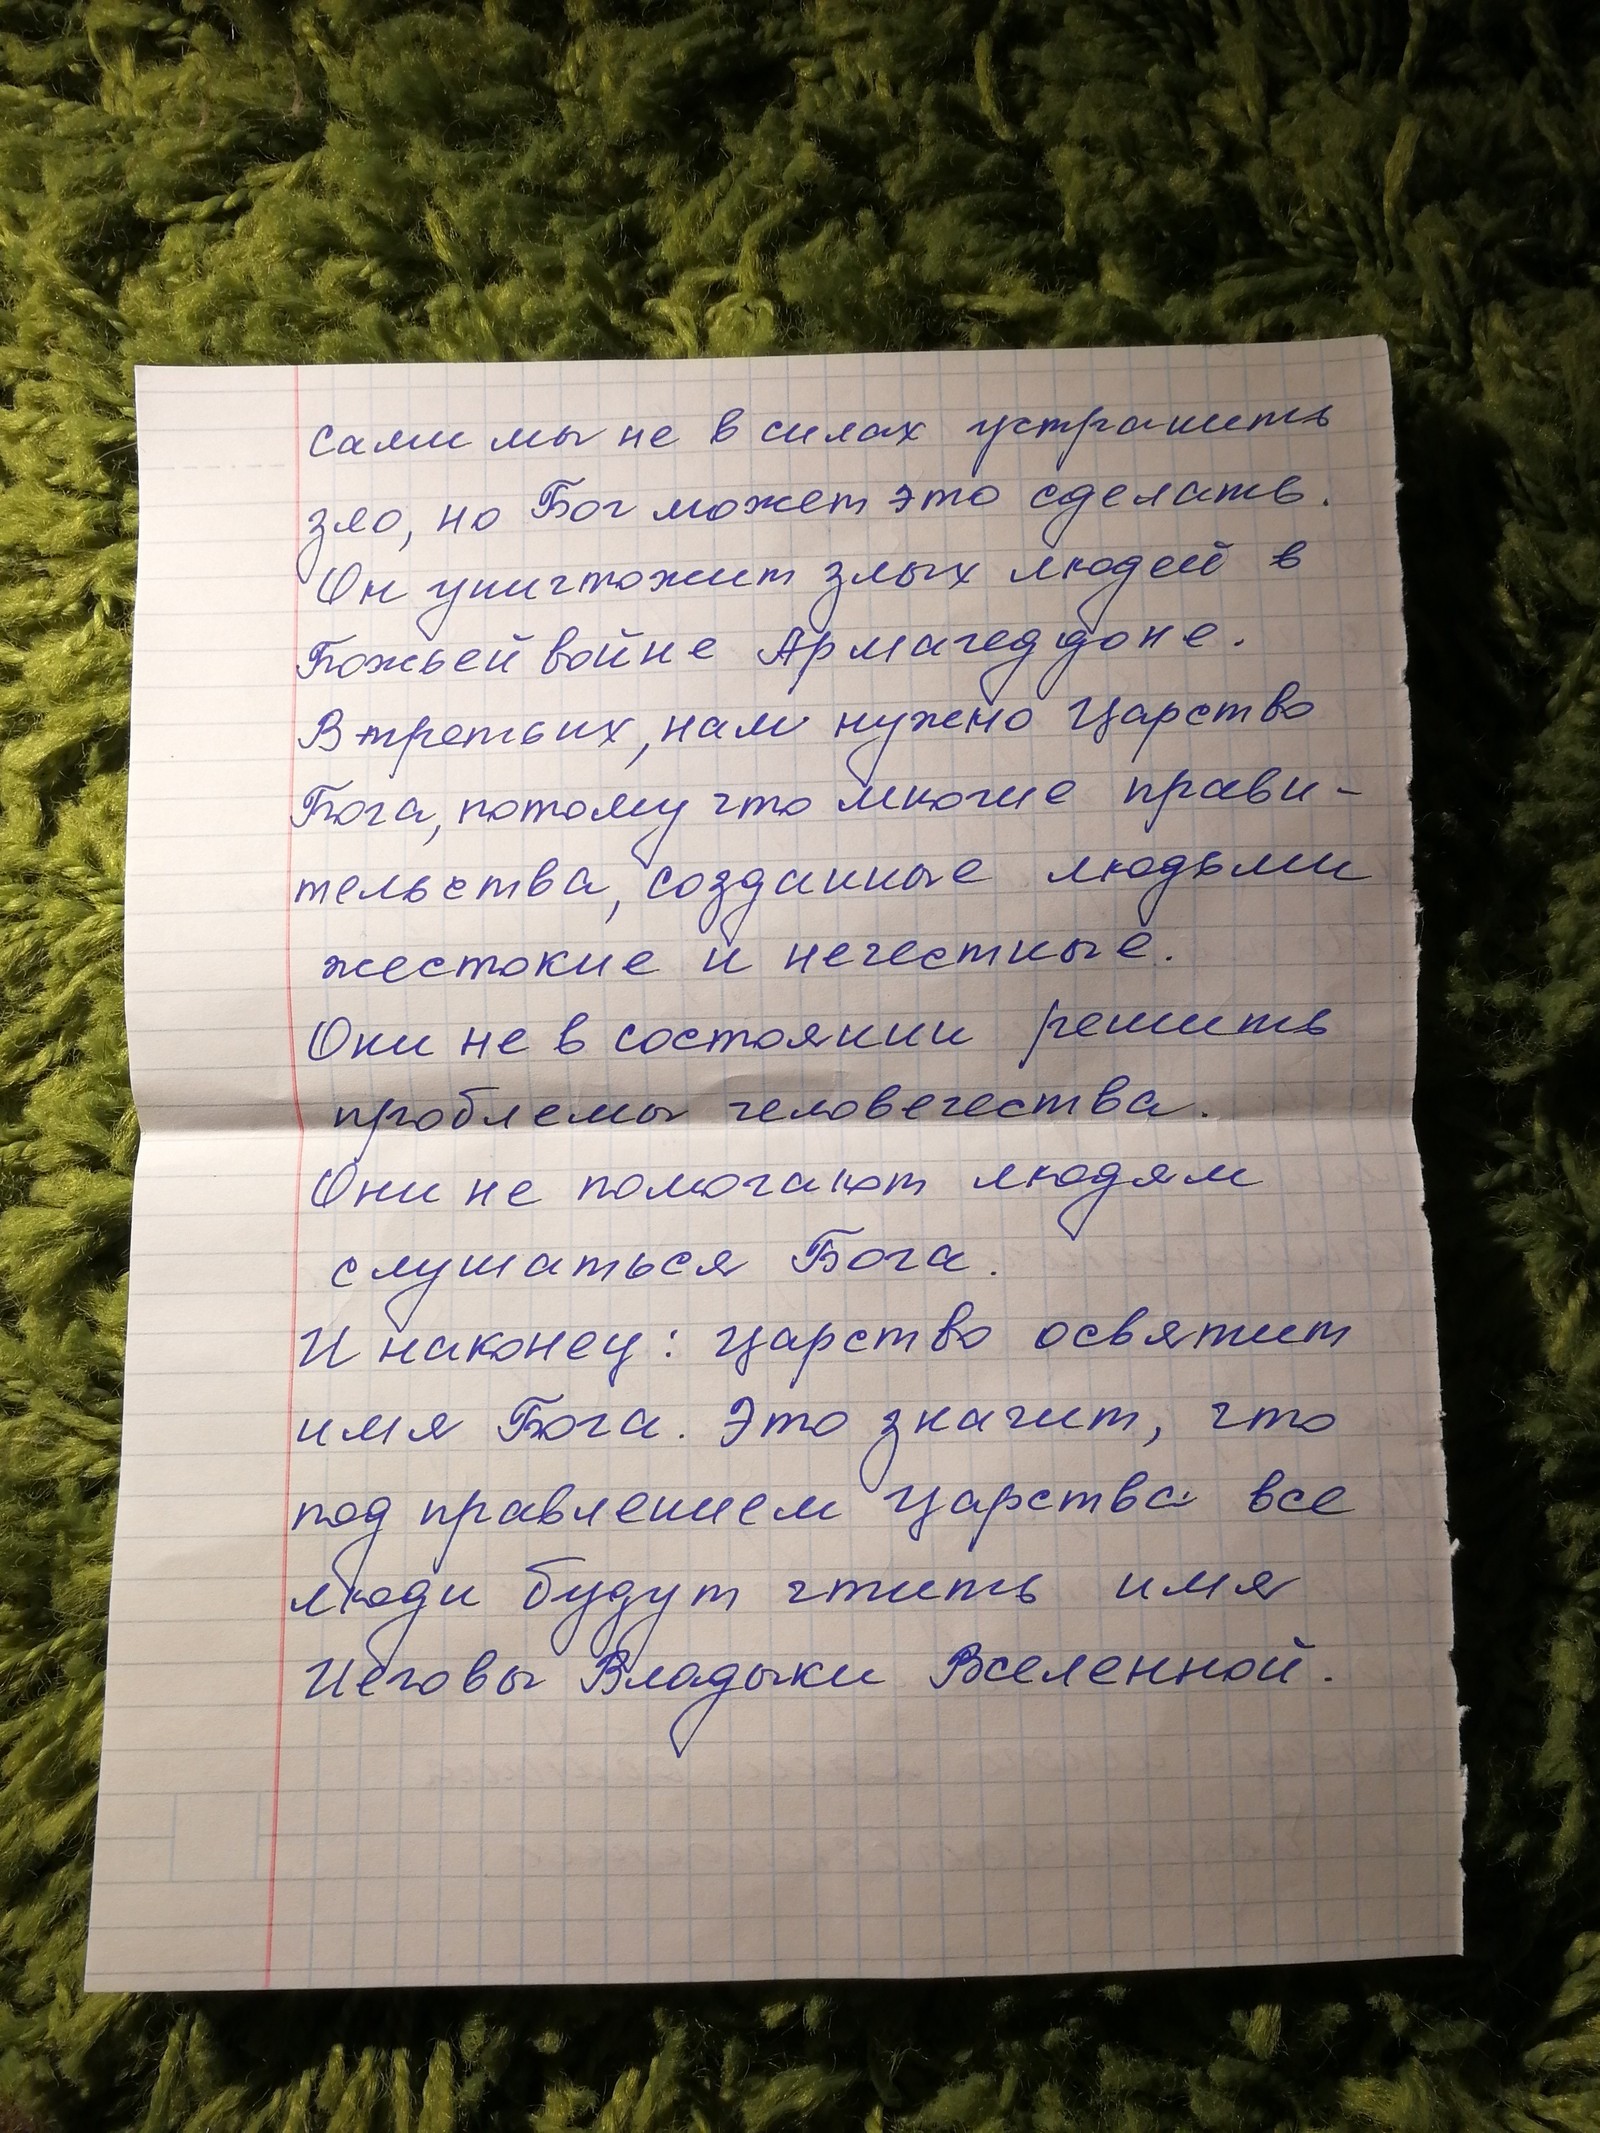 Сами мы не в силах устранить
зло, но Бог может это сделать.
Он уничтожит злых людей в
Божьей войне Армагеддоне.
В третьих, нам нужно Царство
Бога, потому что многие прави-
тельства, созданные людьми
жестокие и нечестные.
Они не в состоянии решить
проблемы человечества.
Они не помогают людям
слушаться Бога.
И наконец: Царство освятит
имя Бога. Это значит, что
под правлением Царства все
люди будут чтить имя
Иеговы Владыки Вселенной.